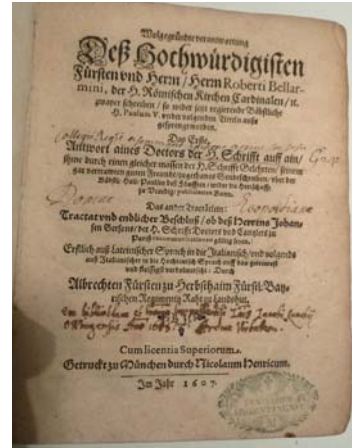 Wolgegründte verantwortung
Deß Hochwürdigisten
Fürsten vnd Herrn / Herrn Roberti Bellar-
mini, der H. Römischen Kirchen Cardinalen / ꝛc.
zwayer schreiben / so wider jetzt regierende Bäbstliche
H. Paulum V. vnder volgenden Titeln auß-
gesprengt worden.
Das Erste,
Antwort eines Doctors der H. Schrifft auff ain /
jhme durch einen gleicher massen der H. Schrifft Gelehrten / seinem
gar vertrawten guten Freunde / zugethanes Sendschreiben / vber der
Bäbstl: Hail: Paulus deß fünfften / wider die Herrschafft
zu Venedig / publicierten Bann.
Das ander Tractätlein:
Tractat vnd endlicher Beschluß / ob deß Herrens Johan-
sen Gersons / der H. Schrifft Doctors vnd Cantzlers zu
Pariß excommunicationes gültig seyen.
Erstlich auß Lateinischer Sprach in die Italianisch / vnd volgends
auß Italianischer in die Hochteutsch Sprach auff das getrewest
vnd fleissigst verdolmetscht: Durch
Albrechten Fürsten zu Herbsthaim Fürstl: Bay-
rischen Regiments Raht zu Landshut.
Cum licentia Superiorum.
Getruckt zu München durch Nicolaum Henricum.
Im Jahr 1607.